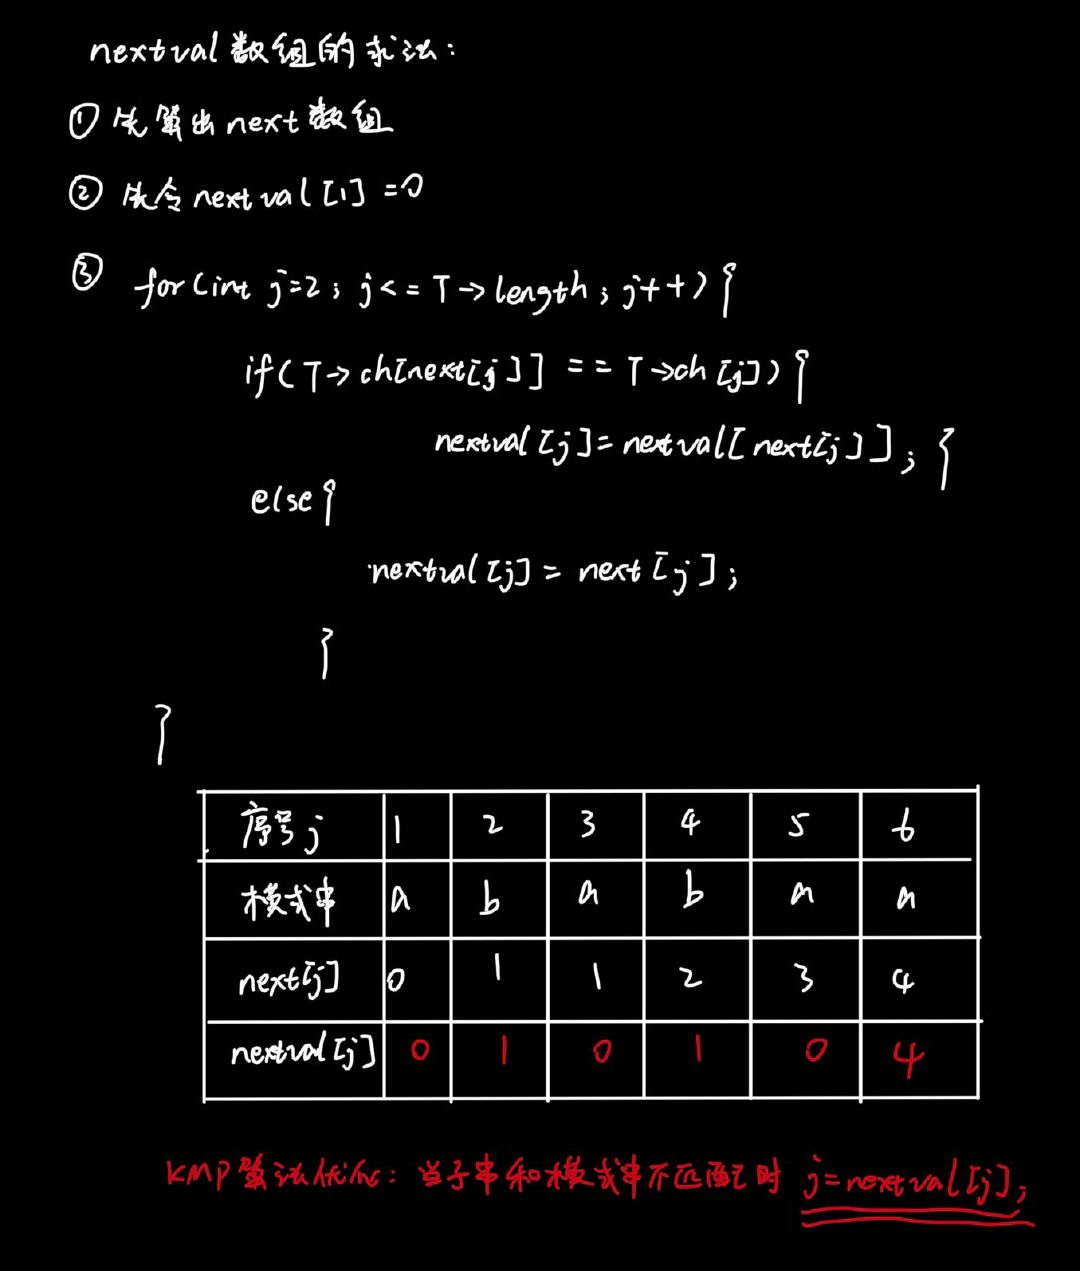 nextval数组的求法:
① 先算出next数组
② 先令nextval[1]=0
③ for(int j=2; j<=T→length; j++){
if(T→ch[next[j]] == T→ch[j]){
nextval[j]=nextval[next[j]]; }
else{
nextval[j]=next[j];
}
}
序号j 1 2 3 4 5 6
模式串 a b a b a a
next[j] 0 1 1 2 3 4
nextval[j] 0 1 0 1 0 4
KMP算法优化: 当子串和模式串不匹配时 j=nextval[j];